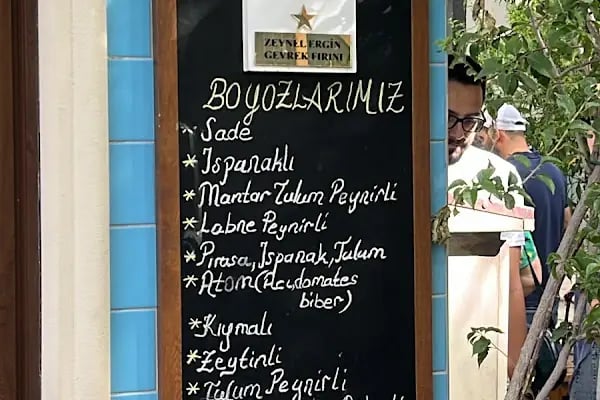 ZEYNEL ERGİN
GEVREK FIRINI
BOYOZLARIMIZ
* Sade
* Ispanaklı
* Mantar Tulum Peynirli
* Labne Peynirli
* Pırasa, Ispanak, Tulum
* Atom (Acı, domates
biber)
* Kıymalı
* Zeytinli
* Tulum Peynirli